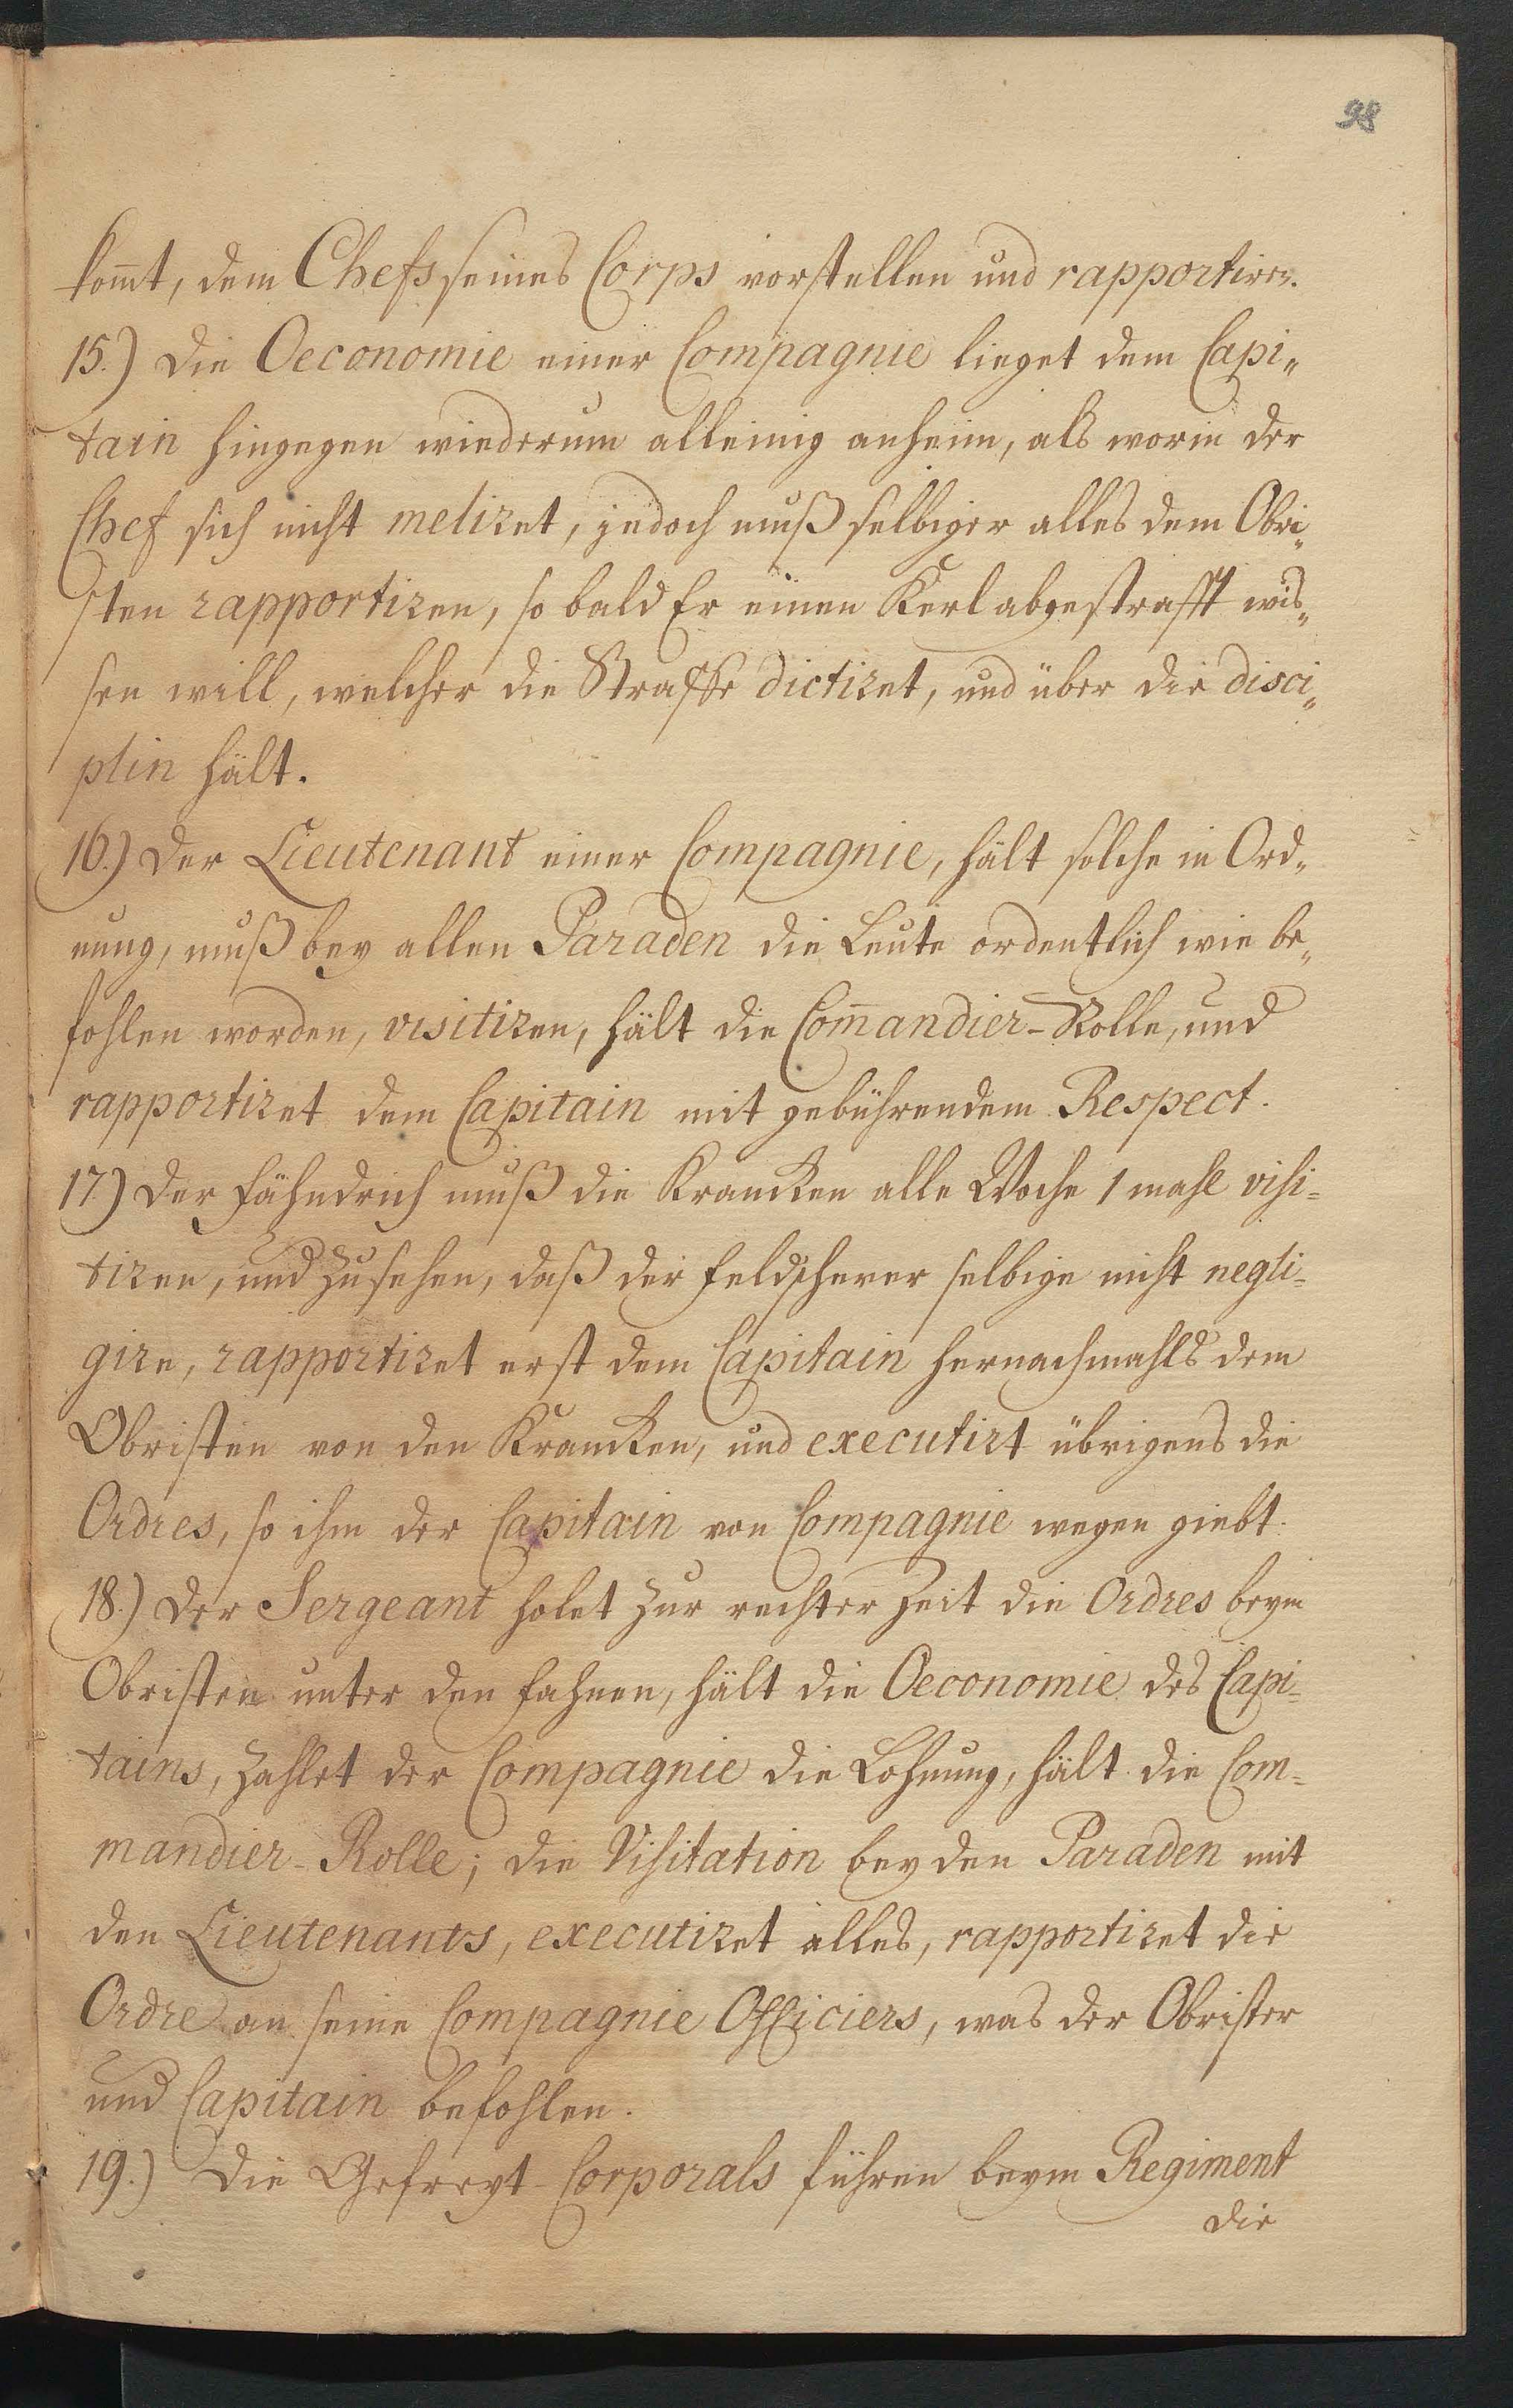 98
kom̄t, dem Chefs seines Corps vorstellen und rapportiren.
15.) Die Oeconomie einer Compagnie lieget dem Capi„
tain hingegen wiederum alleinig anheim, als worin der
Chef sich nicht meliret, jedoch muß selbiger alles dem Obri„
sten rapportiren, so bald Er einen Kerl abgestrafft wis„
sen will, welcher die Straffe dictiret, und über die disci„
plin hält.
16.) Der Lieutenant einer Compagnie, hält solche in Ord„
nung, muß bey allen Paraden die Leute ordentlich wie be„
fohlen worden, visitiren, hält die Com̄andier-Rolle, und
rapportiret dem Capitain mit gebührendem Respect.
17) Der Fähndrich muß die Krancken alle Woche 1 mahl visi=
tiren, und zusehen, daß der Feldscherer selbige nicht negli=
gire, rapportiret erst dem Capitain hernachmahls dem
Obristen von den Krancken, und executirt übrigens die
Ordres, so ihm der Capitain von Compagnie wegen giebt.
18.) Der Sergeant holet zur rechter Zeit die Ordres beym
Obristen unter den Fahnen, hält die Oeconomie des Capi=
tains, zahlet der Compagnie die Lohnung, hält die Com=
mandier-Rolle; die Visitation bey den Paraden mit
den Lieutenants, executiret alles, rapportiret die
Ordre an seine Compagnie Officiers, was der Obrister
und Capitain befohlen.
19.) Die Gefreyt-Corporals führen beym Regiment
die